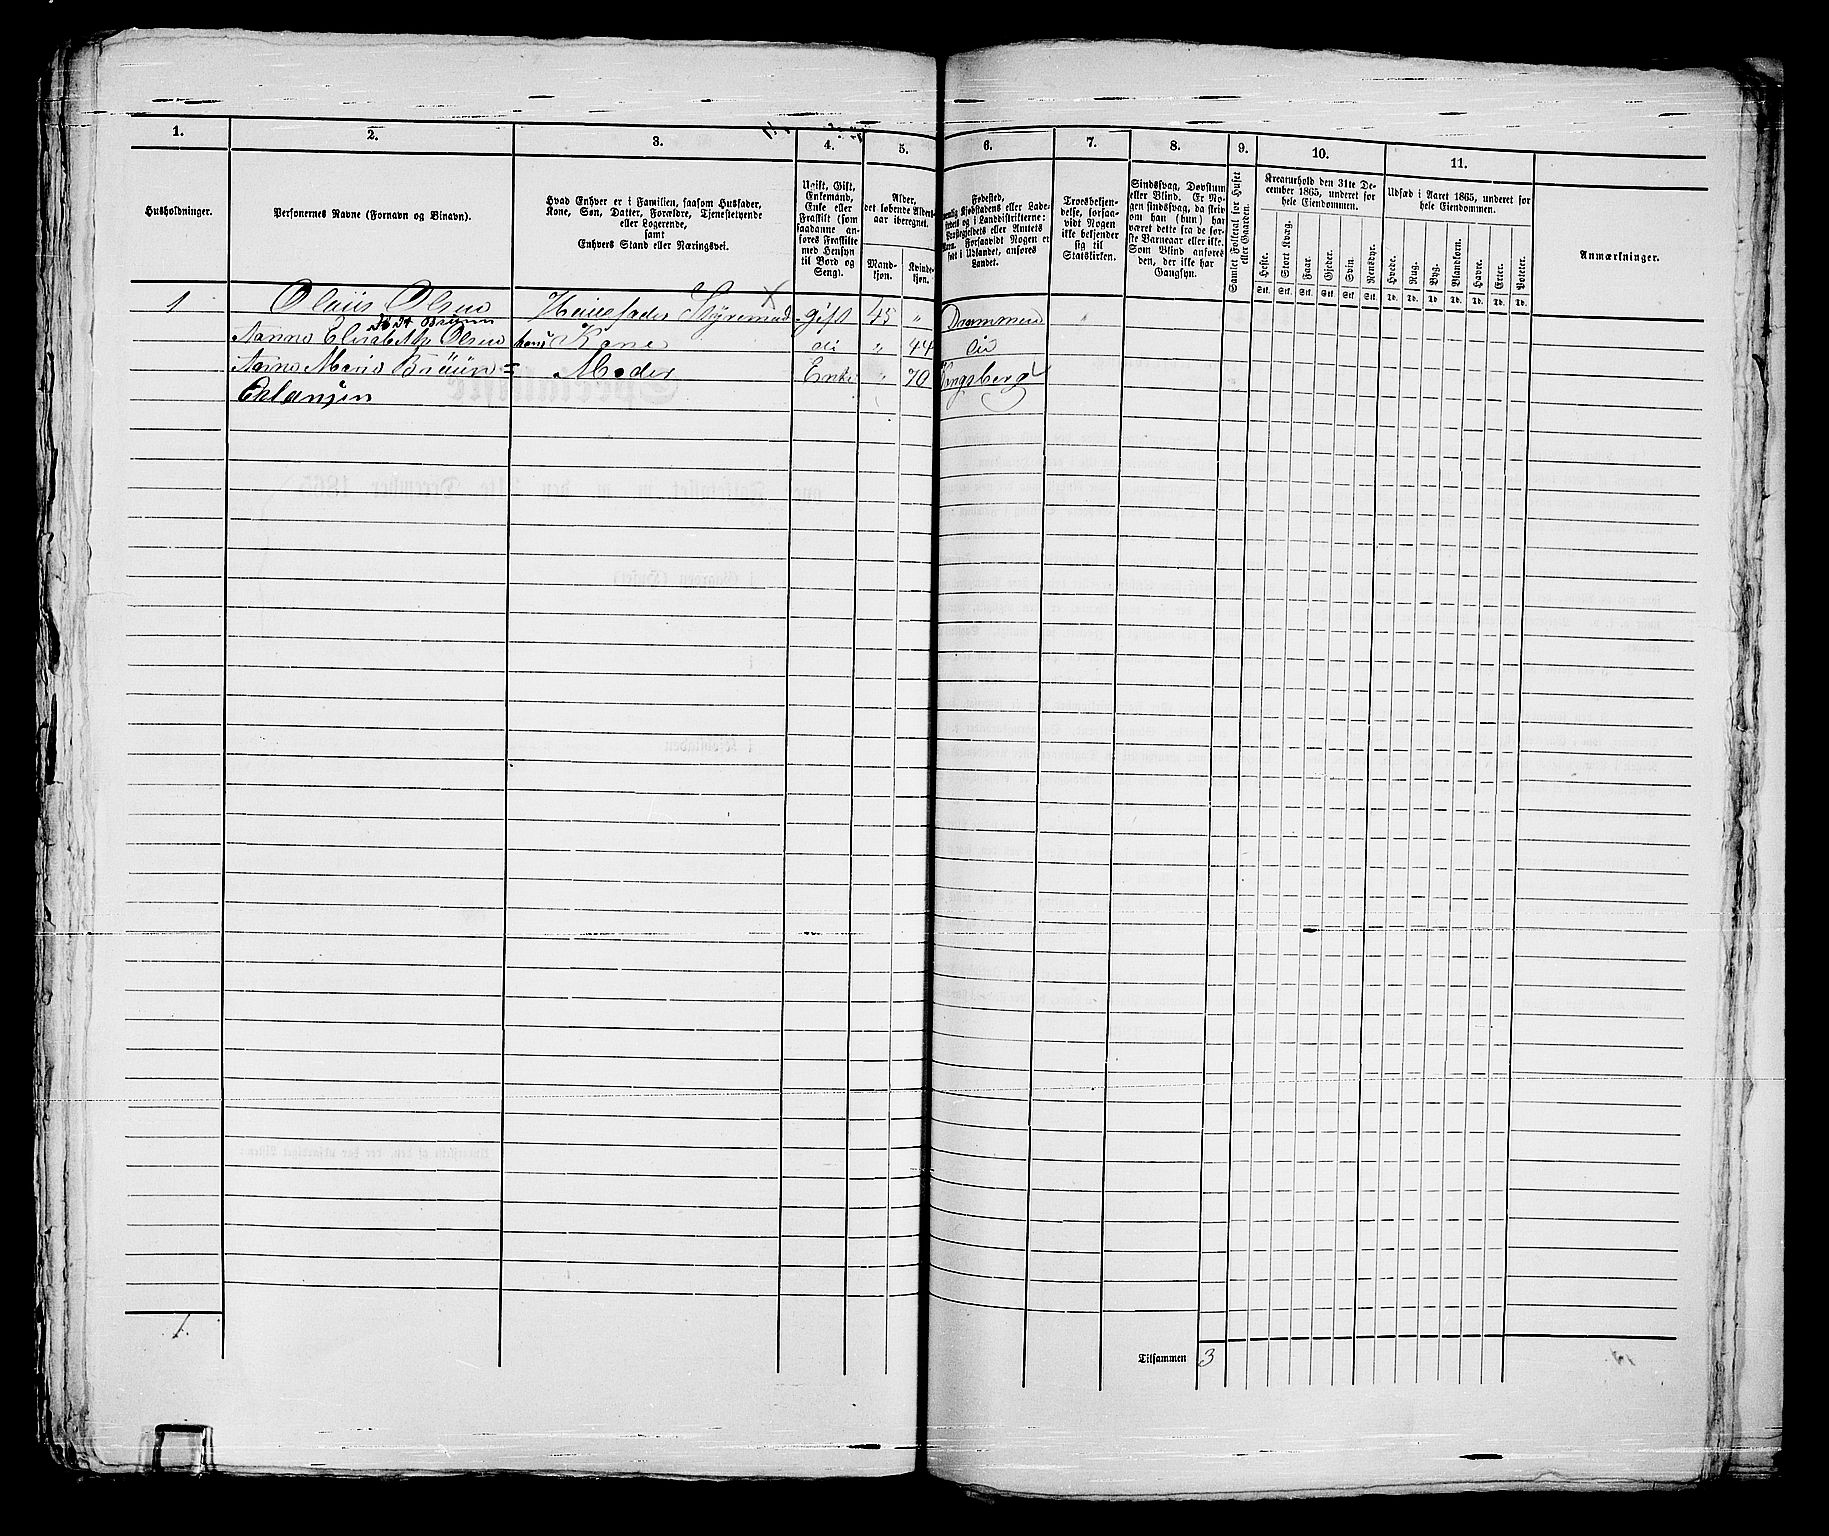 1. 2. 3. 4. 5. 6. 7. 8. 9. 10. 11.
Husholdninger.
Personernes Navne (Fornavn og Binavn).
Hvad Enhver er i Familien, saasom Husfader,
Kone, Søn, Datter, Forældre, Tjenestetyende
eller Logerende,
samt
Enhvers Stand eller Næringsvei.
Ugift, Gift,
Enkemand,
Enke eller
Fraskilt (som
saadanne an-
føres Fraskilte
med Hensyn
til Bord og
Seng).
Alder,
det løbende Alders-
aar iberegnet.
Mand-
kjøn.
Kvinde-
kjøn.
Fødested,
nemlig Kjøbstadens eller Lade-
stedets og i Landdistrikterne:
Præstegjeldets eller Amtets
Navn. Forsaavidt Nogen er
født i Udlandet, anføres
Landet.
Troesbekjen-
delse, forsaa-
vidt Nogen
ikke bekjender
sig til
Statskirken.
Sindssvag, Døvstum
eller Blind. Er No-
gen sindssvag, da skriv
om han (hun) har
været dette fra de før-
ste Barneaar eller ikke.
Som Blind anføres
den, der ikke har
Gangsyn.
Samlet Folketal for Huset
eller Gaarden.
Kreaturhold den 31te De-
cember 1865, underet for
hele Eiendommen.
Heste. Stort Kvæg. Faar. Gjeder. Svin. Rensdyr.
Stk. Stk. Stk. Stk. Stk. Stk.
Udsæd i Aaret 1865, underet for
hele Eiendommen.
Hvede. Rug. Byg. Blandkorn. Havre. Erter. Poteter.
Td. Td. Td. Td. Td. Td. Td.
Anmærkninger.
1 Olaüs Olsen Huusfader Styrmand Gift 45 " Drammen "
Anne Elisabeth Olsen hans Kone do " 44 do
Anne Marie Braün= Moder Enke " 70 Kongsberg
Erlansen
1.
Tilsammen 3